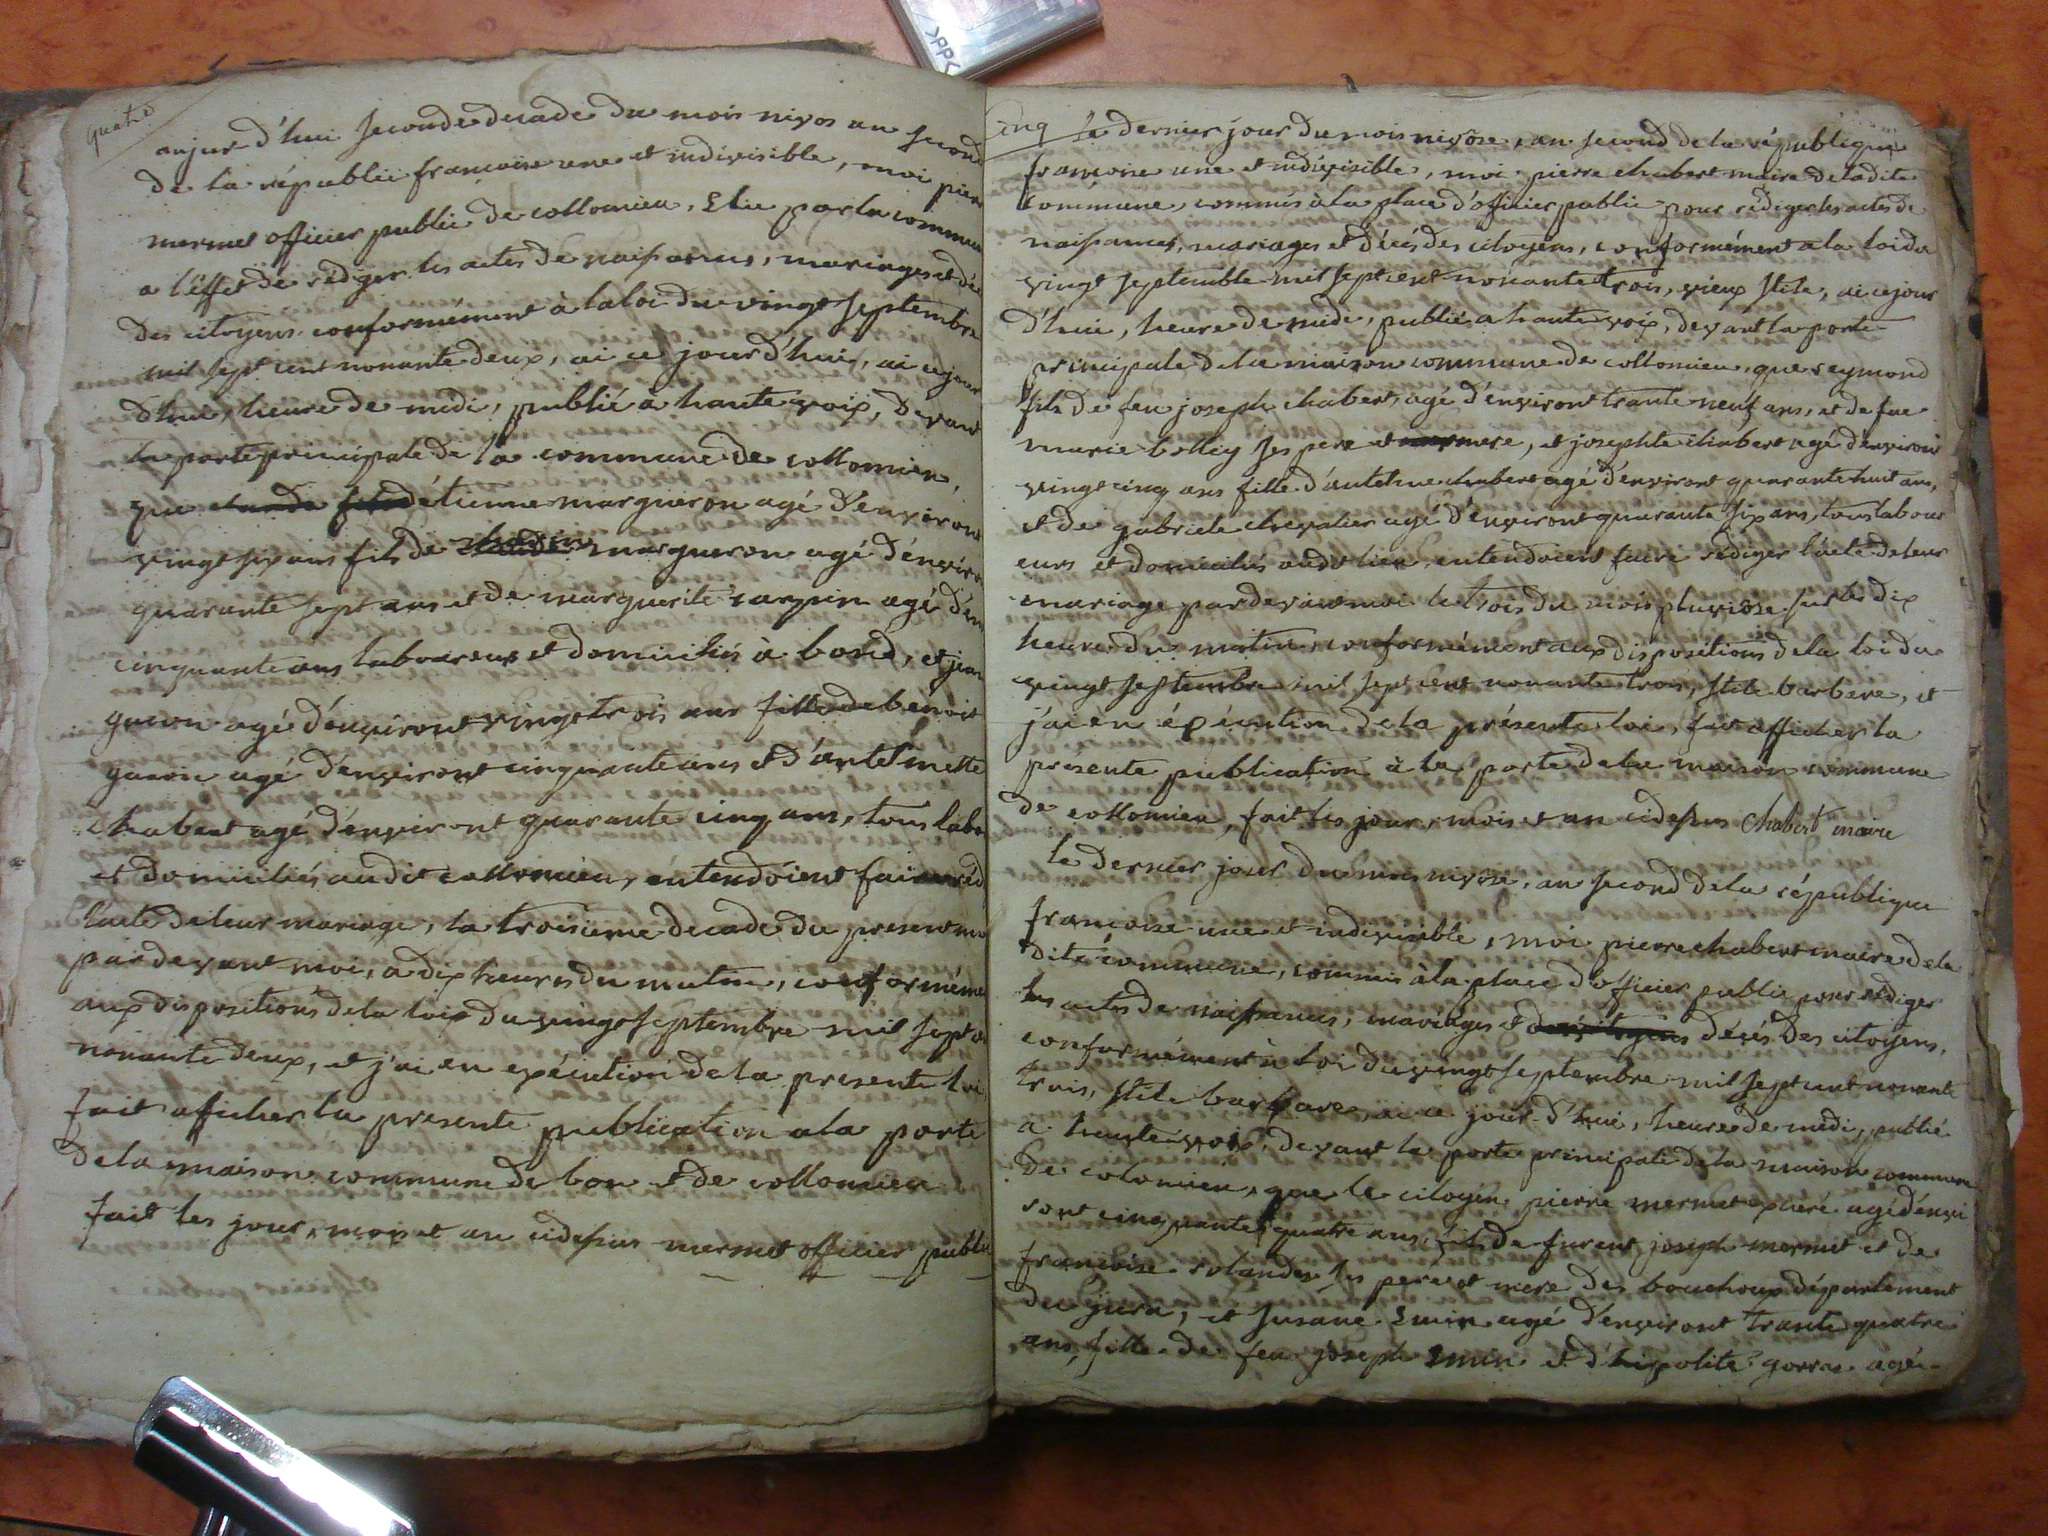 quatre
aujur d'hui seconde decade du mois nivos an second
de la républi françoise une et indivisible, moi pierre
mermet officier public de collomieu, Elu par la commune
a l'effet de rédiger les actes de naissances, mariages et dé
des citoyens conformément à la loi du vingt septembre
mil sept cent nonante deux, ai ce jour d'hui, ai ce jour
d'hui, heure de midi, publié a haute voix, devant
la porte principale de la commune de collomieu,
que détienne margueron agé d'environt
vingt six ans fils de margueron agé d'enviro
quarante sept ans et de marguerite carrin agé d'en
cinquante ans laboureurs et domicilies à bond, et jean
gueon agé d'environt vingt trois ans fille de benoit
gueon agé d'environt cinquante ans et d'antelmette
chabert agé d'environt quarante cinq ans, tous labo
et domiciliés au dit collomieu, entendoient faire réd
lacte de leur mariage, la troisieme decade du present moi
pardevant moi, a dix heures du matin, conformémen
aux dispositions de la loix du vingt septembre mil sept ce
nonante deux, et j'ai en exécution de la presente loi
fait afficher la presente publication a la porte
de la maison commune de bon et de collomieu
fait les jour, mois et an cidessus mermet officier public
PP
cinq le dernier jour du mois nivôse, an second de la république
françoise une et indivisible, moi pierre chabert maire de la dite
commune, commis à la place d'officier public pour rédiger les actes de
naissances, mariages et décés des citoyens, conformément a la loi du
vingt septembre mil sept cent nonante trois, vieux stile, ai ce jour
d'hui, heure de midi, publiés a haute voix, devant la porte
principale de la maison commune de collomieu, que reymond
fils de feu joseph chabert, agé d'environt trante neuf ans, et de fue
marie bolliy ses pere et mere, et josephte chabert agé d'environt
vingt cinq ans fille d'antelme chabert agé d'environt quarante huit ans,
et de gabriele chevalier agé d'environt quarante six ans, tous labour
eurs et domicaliés audit lieu, entendoient faire rédiger l'acte de leur
mariage pardevant moi le trois du mois pluviose sur les dix
heure du matin, conformément aux dispositions de la loi du
vingt septembre mil sept cent nonante trois, stile barbare, et
j'ai en exécution de la présente loi, fait afficher la
presente publication à la porte de la maison commune
de collomieu, fait les jour, mois et an cidessus chabert maire
le dernier jour du mois nivose, an second de la république
françoise une et indivisible, moi pierre chabert maire de la
dite commune, commis à la place d'officier public pour rédiger
les actes de naissances, mariages et désés des citoyens,
conformément à loi du vingt septembre mil sept cent nonante
trois, stile barbare, ai ce jour d'hui, heure de midi, publié
a haute voix, devant la porte principale de la maison commune
de colomieu, que le citoyen pierre mermet excuré agé d'envi
ront cinquante quatre ans, fils de furent joseph mermet et de
françoise rolandez ses pere et mere des bouchoux département
du jura, et susane Emin agé d'environt trante quatre
ans, fille de feu joseph Emin et d'hippolite gorras agé